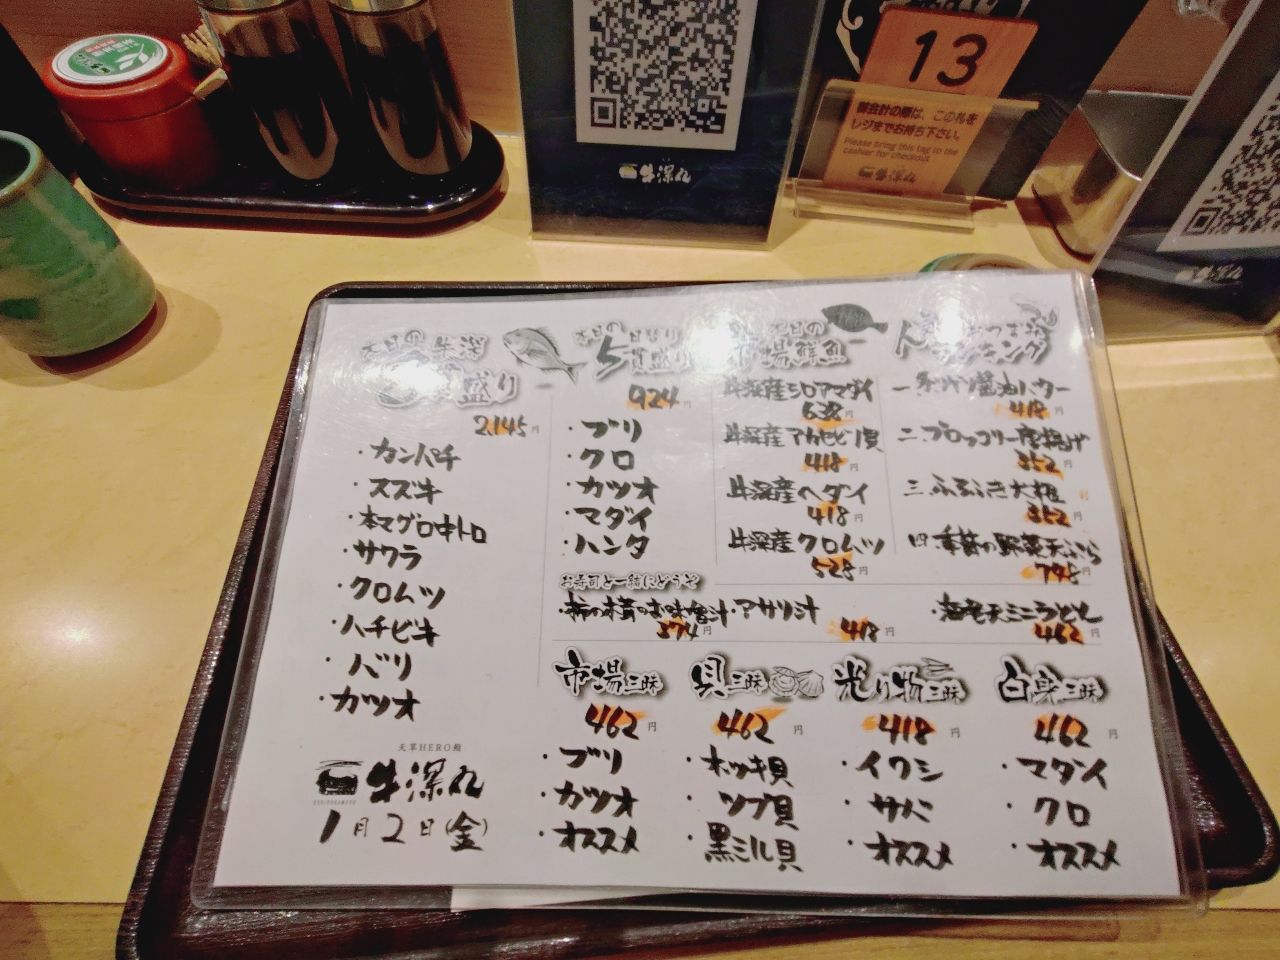 13
御会計の際は、この札を
レジまでお持ち下さい。
Please bring this tag to the
cashier for checkout
牛深丸
牛深丸
本日の牛深
盛り
2,145円
・カンパチ
・スズキ
・本マグロ中トロ
・サワラ
・クロムツ
・ハチビキ
・バリ
・カツオ
天草HERO鮨
牛深丸
1月2日(金)
本日の日替り
5貫盛り
924円
・ブリ
・クロ
・カツオ
・マダイ
・ハンタ
本日の
市場鮮魚
牛深産シロアマダイ
638円
牛深産アカセビノ貫
418円
牛深産ヘダイ
418円
牛深産クロムツ
528円
人気おつまみ
ランキング
一.醤油バター
418円
二.ブロッコリー唐揚げ
352円
三.ふろふき大根
352円
四.季節の野菜天ぷら
748円
お寿司と一緒にどうぞ
・柿の木茸のお味噌汁
374円
・アサリ汁
418円
・海老天ミニうどん
462円
市場三昧
462円
・ブリ
・カツオ
・オススメ
貝三昧
462円
・ホッキ貝
・ツブ貝
・黒ミル貝
光り物三昧
418円
・イワシ
・サバ
・オススメ
白身三昧
462円
・マダイ
・クロ
・オススメ